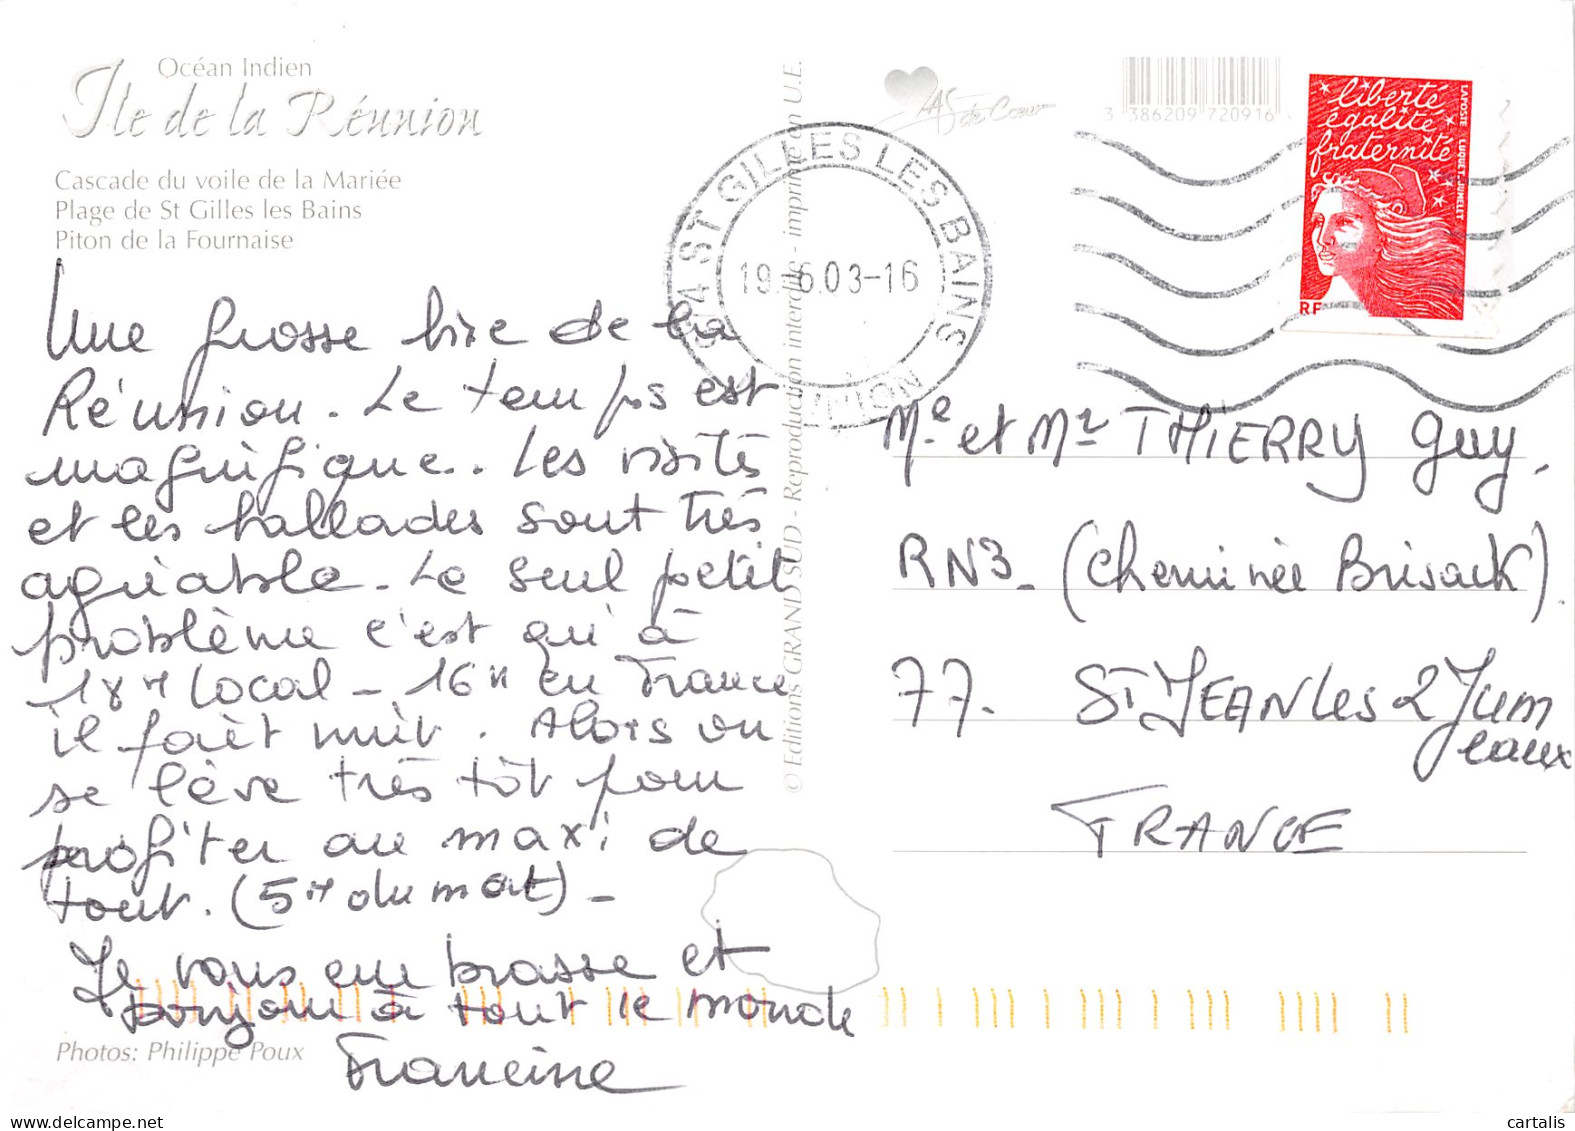 Océan Indien
Ile de la Réunion
Cascade du voile de la Mariée
Plage de St Gilles les Bains
Piton de la Fournaise
Une grosse bise de la
Réunion. Le temps est
magnifique. Les visités
et les ballades sont très
agréable. Le seul petit
problème c'est qu'à
18H local - 16H en France
il fait nuit. Alors on
se lève très tôt pour
profiter au maxi de
tout. (5H du mat) -
Je vous embrasse et
bonjour à tout le monde
Francine
Photos: Philippe Poux
© Editions GRAND SUD - Reproduction interdite - imprimé en U.E.
AS de Cœur
3 386209 720916
ST GILLES LES BAINS
19-6.03-16
liberté
égalité
fraternité
LAPOSTE LUQUET-JUMELET
RF
Me et Mr THIERRY Guy.
RN3 - (Cheminée Brisack).
77. ST JEAN Les 2 Jum
eaux
FRANCE
cartalis
delcampe.net